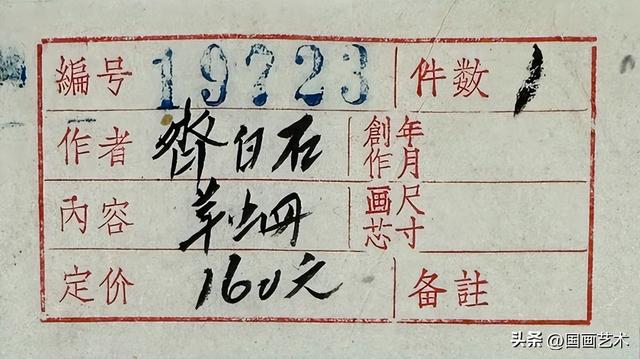 編号 19723 件数 1
作者 齊白石 創作年月
內容 册 画芯尺寸
定价 160元 备註
头条 @国画艺术